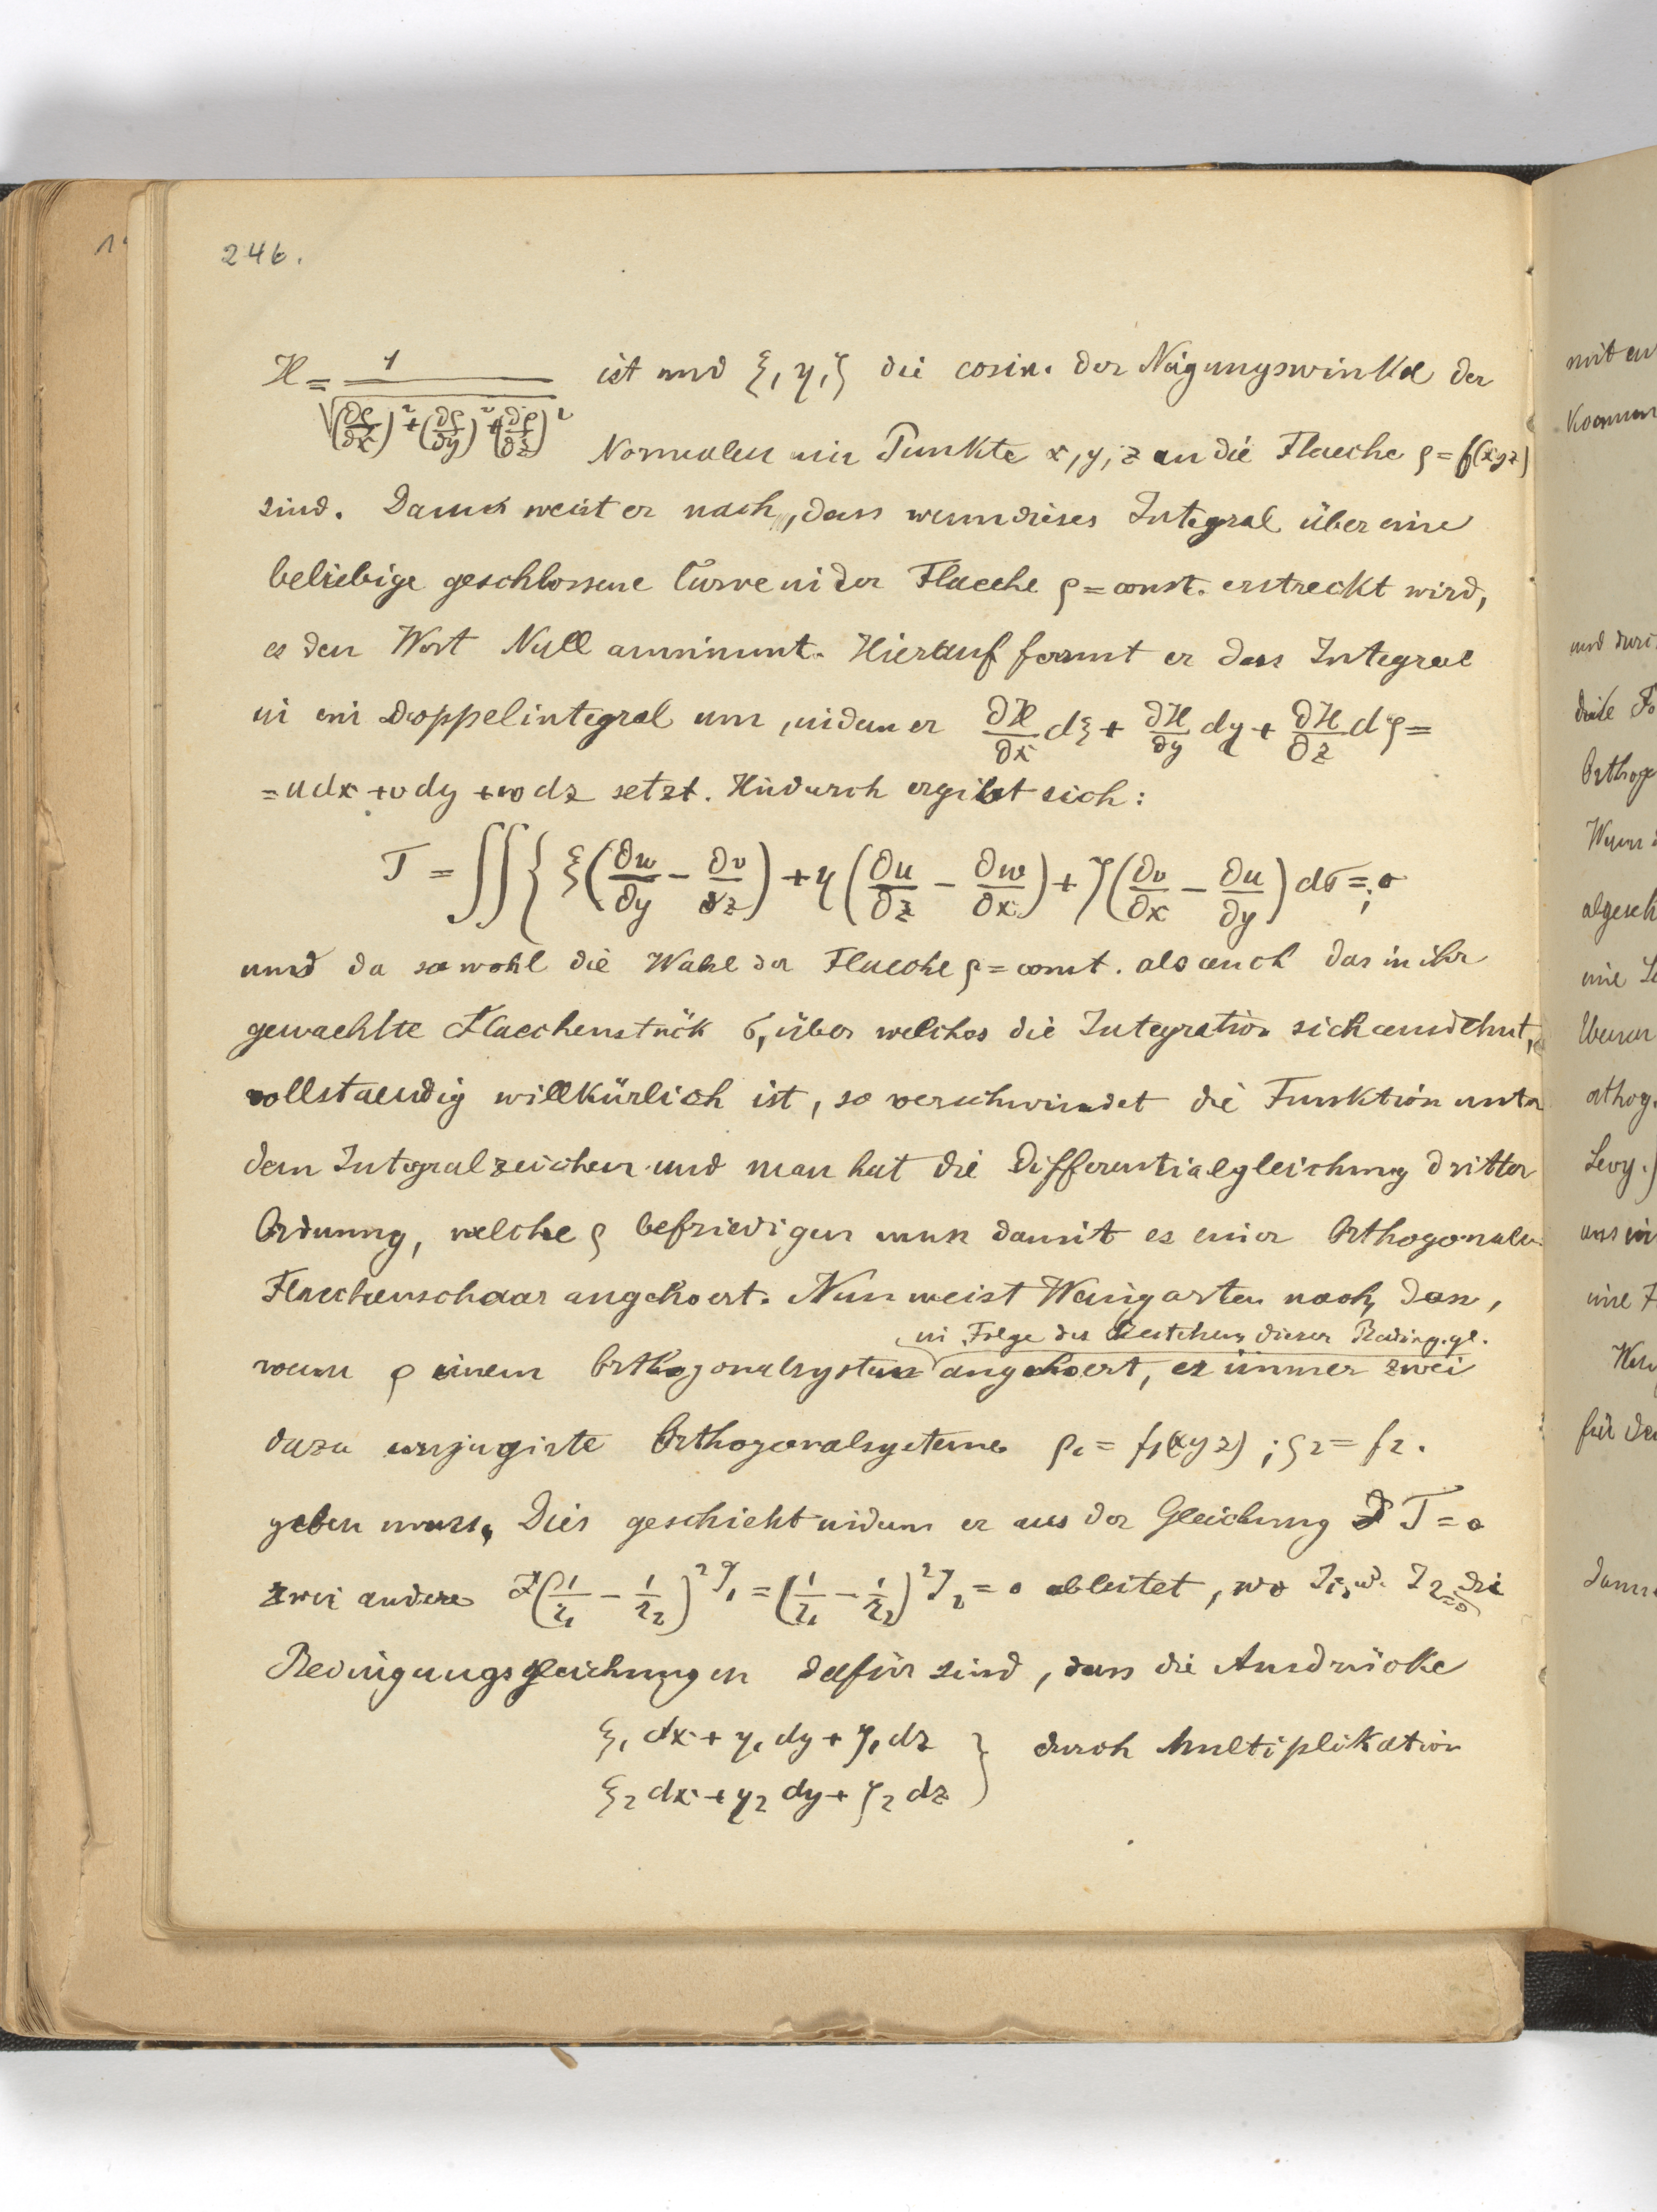 246.
H = 1 / √((∂ρ/∂x)² + (∂ρ/∂y)² + (∂ρ/∂z)²) ist und ξ, η, ζ die cosin. der Neigungswinkel der
Normalen im Punkte x, y, z an die Flaeche ρ = f(xyz)
sind. Dann weist er nach, dass wenn dieses Integral über eine
beliebige geschlossene Curve in der Flaeche ρ = const. erstreckt wird,
es den Wert Null annimmt. Hierauf formt er das Integral
in ein Doppelintegral um, indem er ∂H/∂x dξ + ∂H/∂y dη + ∂H/∂z dζ =
= u dx + v dy + w dz setzt. Hiedurch ergibt sich:
J = ∫∫ { ξ(∂w/∂y − ∂v/∂z) + η(∂u/∂z − ∂w/∂x) + ζ(∂v/∂x − ∂u/∂y) dσ = 0;
und da sowohl die Wahl der Flaeche ρ = const. als auch das in ihr
gewaehlte Flaechenstück σ, über welches die Integration sich ausdehnt,
vollstaendig willkürlich ist, so verschwindet die Funktion unter
dem Integralzeichen und man hat die Differentialgleichung dritter
Ordnung, welche ρ befriedigen muss damit es einer Orthogonalen
Flaechenschaar angehoert. Nun weist Weingarten nach, dass,
in Folge des Bestehens dieser Beding.gl.
wenn ρ einem Orthogonalsystem angehoert, es immer zwei
dazu conjugirte Orthogonalsysteme ρ₁ = f₁(xyz); ρ₂ = f₂.
geben muss. Dies geschieht indem er aus der Gleichung J = 0
zwei andere (1/r₁ − 1/r₂)² J₁ = (1/r₁ − 1/r₂)² J₂ = 0 ableitet, wo J₁ u. J₂ = 0 die
Bedingungsgleichungen dafür sind, dass die Ausdrücke
ξ₁ dx + η₁ dy + ζ₁ dz } durch Multiplikation
ξ₂ dx + η₂ dy + ζ₂ dz